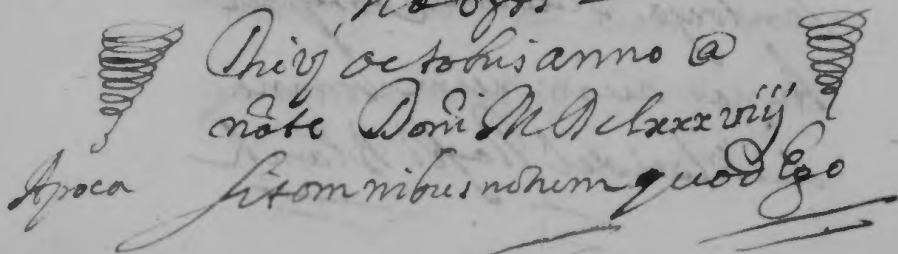 Die vj octobris anno @
nāte Dom̄ M Dclxxxviij
Apoca Sit omnibus notum quod Ego